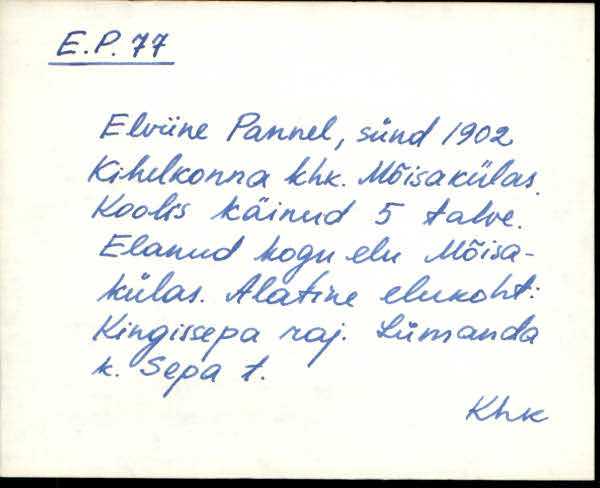 E.P. 77
Elviine Pannel, sünd 1902
Kihelkonna khk. Mõisakülas.
Koolis käinud 5 talve.
Elanud kogu elu Mõisa-
külas. Alatine elukoht:
Kingissepa raj. Lümanda
k. Sepa t.
Khk